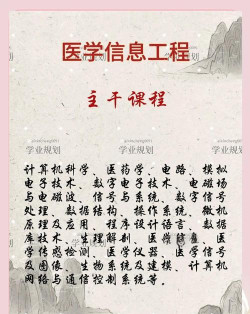 医学信息工程
学业规划
学业规划
主干课程
学业规划
学业规划
计算机科学、医药学、电路、模拟
电子技术、数字电子技术、电磁场
与电磁波、信号与系统、数字信号
处理、数据结构、操作系统、微机
原理及应用、程序设计语言、数据
库技术、生理解剖、医学信息、医
学传感检测、医学仪器、医学信号
及图像、生物系统及建模、计算机
网络与通信控制系统等。